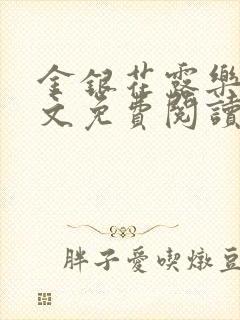 金銀花露樂
文免費閱讀
胖子愛喫燉豆